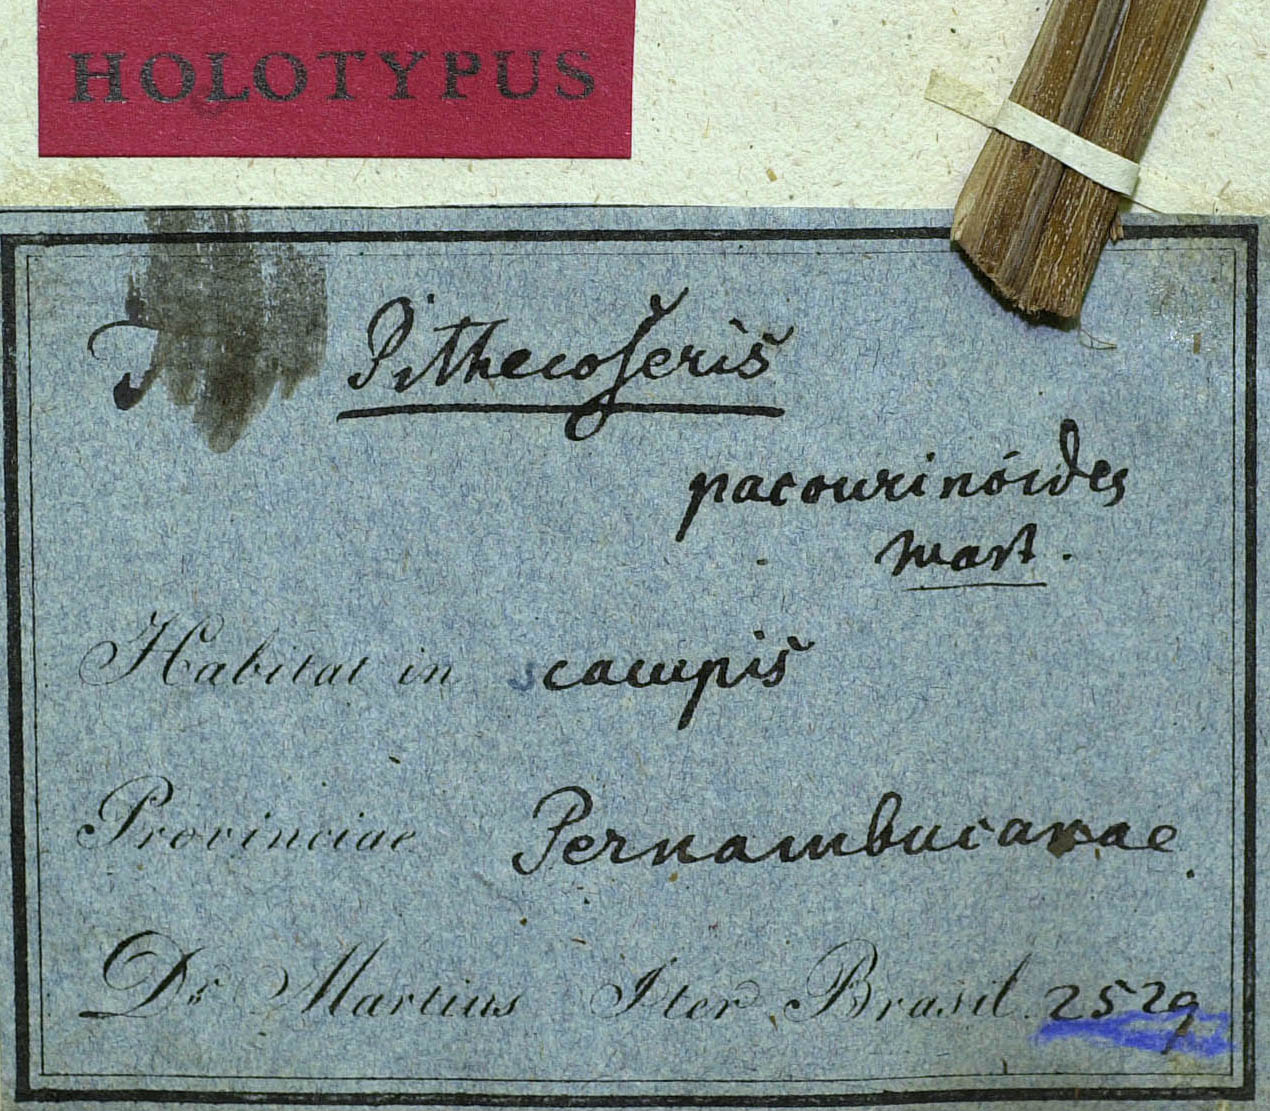 HOLOTYPUS
Pithecoſeris
pacourinoides
Mart.
Habitat in campis
Provinciae Pernambucanae
Dr Martius Iter Brasil. 2529